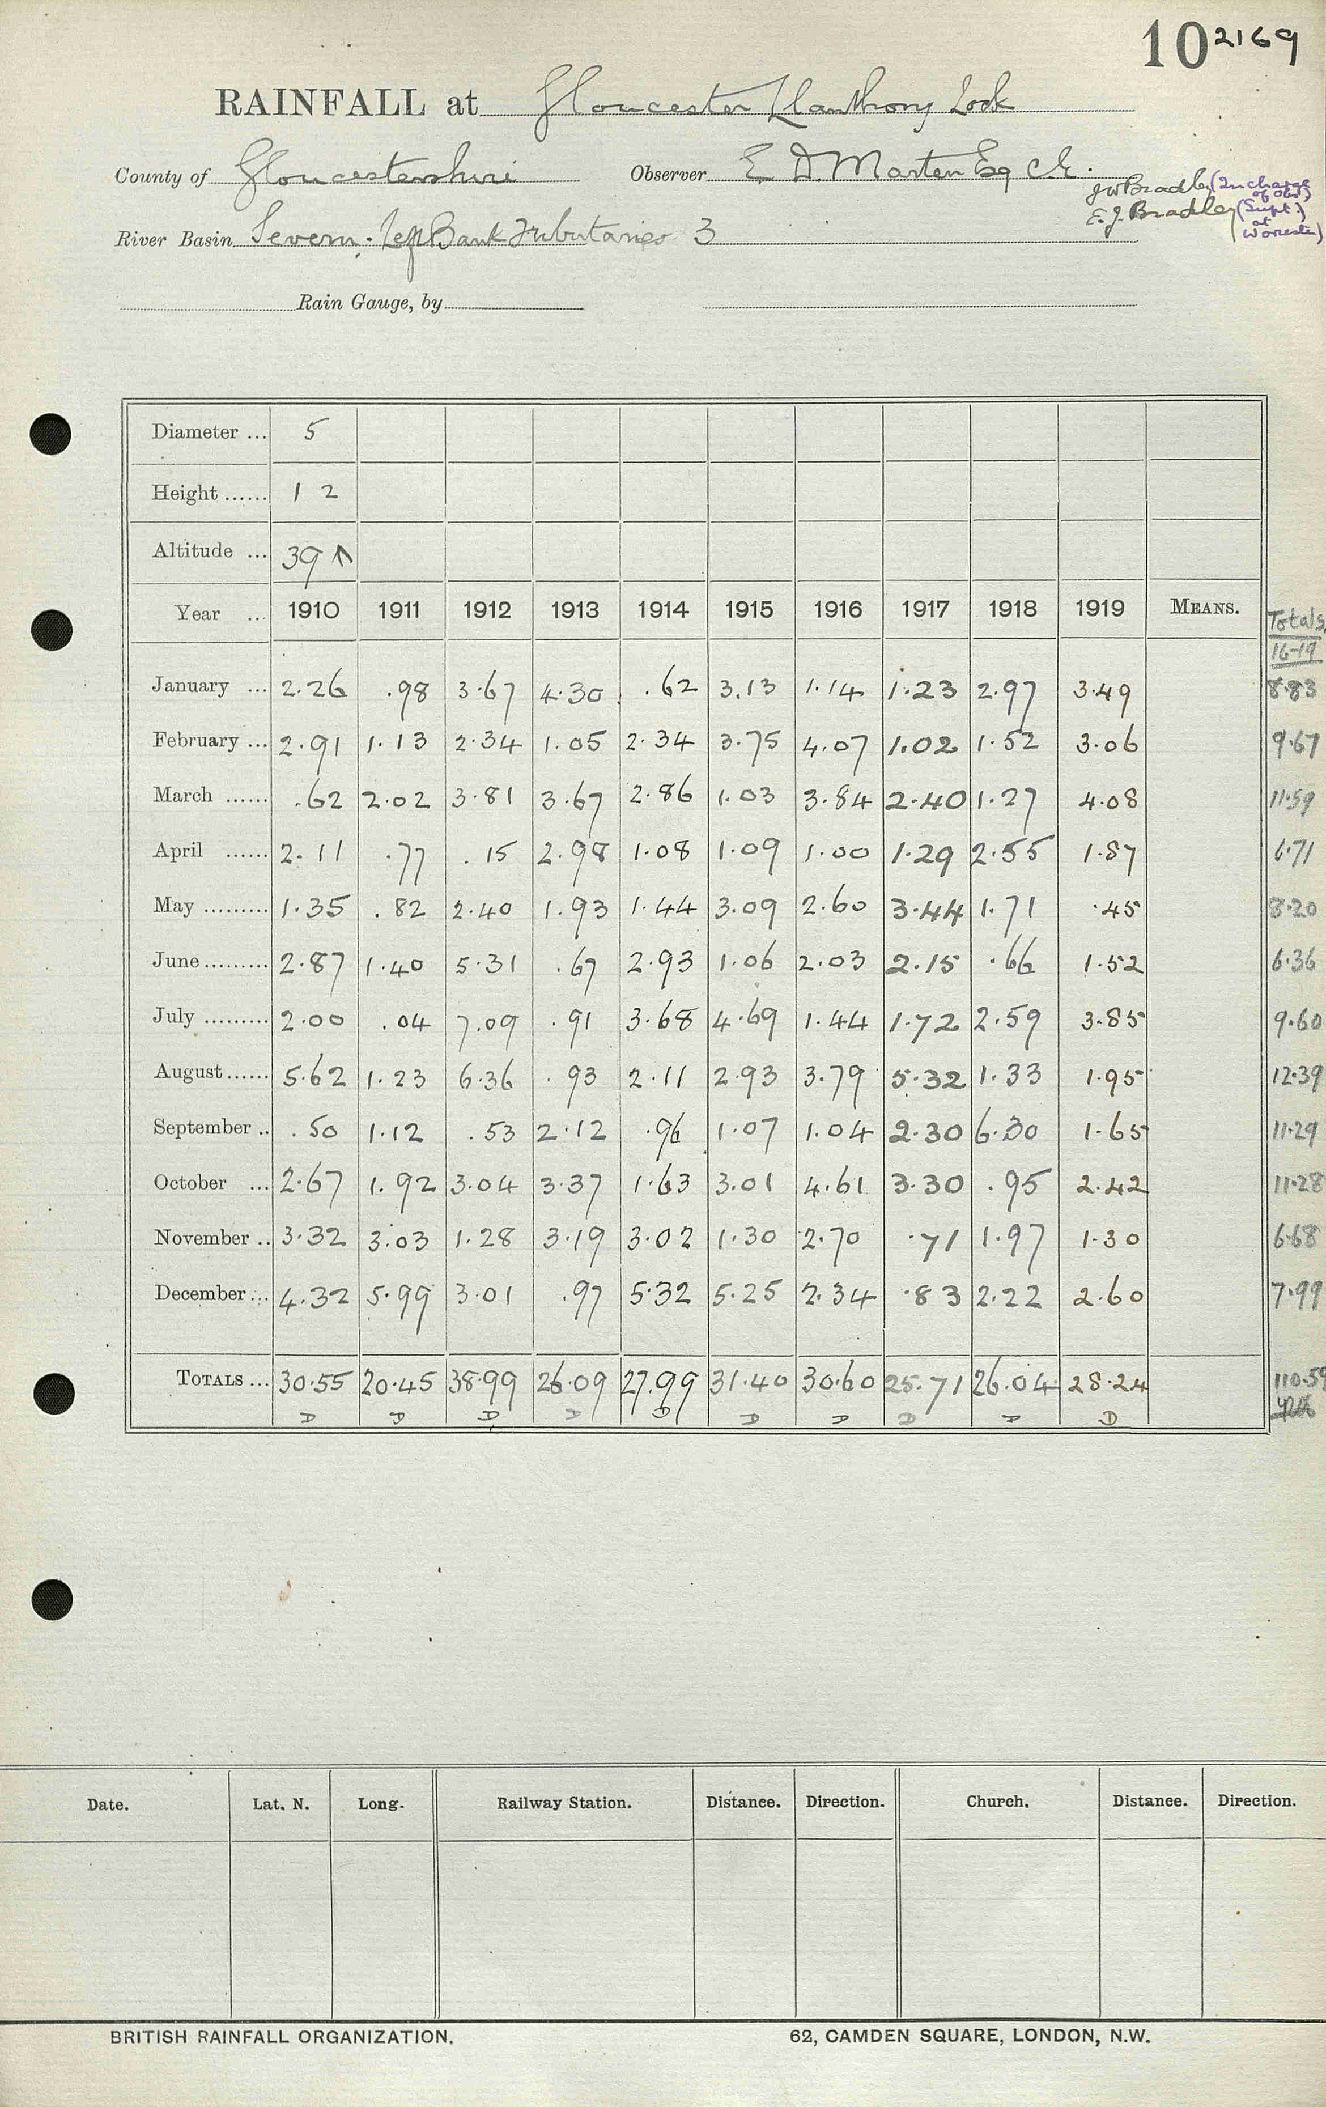 10 2169
RAINFALL at Gloucester Llanthony Lock
County of Gloucestershire Observer E D Marten Esq C.E.
J W Bradley (In charge of obs)
E. J. Bradley (Supt. at Worcester)
River Basin Severn. Left Bank Tributaries 3
Rain Gauge, by
Diameter ... 5
Height ...... 12
Altitude ... 39 ↑
Year ... 1910 1911 1912 1913 1914 1915 1916 1917 1918 1919 MEANS. Totals 16-19
January ... 2.26 .98 3.67 4.30 .62 3.13 1.14 1.23 2.97 3.49 8.83
February ... 2.91 1.13 2.34 1.05 2.34 3.75 4.07 1.02 1.52 3.06 9.67
March ...... .62 2.02 3.81 3.67 2.86 1.03 3.84 2.40 1.27 4.08 11.59
April ...... 2.11 .77 .15 2.98 1.08 1.09 1.00 1.29 2.55 1.87 6.71
May ......... 1.35 .82 2.40 1.93 1.44 3.09 2.60 3.44 1.71 .45 8.20
June ......... 2.87 1.40 5.31 .67 2.93 1.06 2.03 2.15 .66 1.52 6.36
July ......... 2.00 .04 7.09 .91 3.68 4.69 1.44 1.72 2.59 3.85 9.60
August ...... 5.62 1.23 6.36 .93 2.11 2.93 3.79 5.32 1.33 1.95 12.39
September .. .50 1.12 .53 2.12 .96 1.07 1.04 2.30 6.30 1.65 11.29
October ... 2.67 1.92 3.04 3.37 1.63 3.01 4.61 3.30 .95 2.42 11.28
November .. 3.32 3.03 1.28 3.19 3.02 1.30 2.70 .71 1.97 1.30 6.68
December ... 4.32 5.99 3.01 .97 5.32 5.25 2.34 .83 2.22 2.60 7.99
TOTALS ... 30.55 20.45 38.99 26.09 27.99 31.40 30.60 25.71 26.04 28.24 110.59
D D D D D D D D D D
Date. Lat. N. Long. Railway Station. Distance. Direction. Church. Distance. Direction.
BRITISH RAINFALL ORGANIZATION. 62, CAMDEN SQUARE, LONDON, N.W.